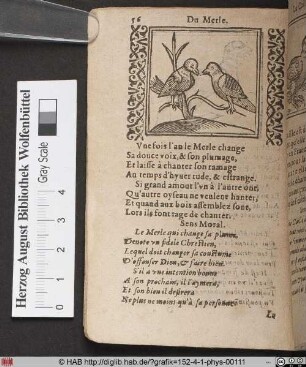 56 Du Merle.
Vne fois l'an le Merle change
Sa douce voix, & son plumage,
Et laisse à chanter son ramage
Au temps d'hyuer rude, & estrange.
Si grand amour l'vn à l'autre ont,
Qu'autre oyseau ne veulent hanter,
Et quand aux bois assemblez sont,
Lors ils font rage de chanter.
Sens Moral.
Le Merle qui change sa plume,
Denote vn fidele Chrestien,
Lequel doit changer sa coustume
D'offenser Dieu, & faire bien.
S'il a vne intention bonne
A son prochain, il l'aymera;
Et son bien il desirera
Ne plus ne moins qu'à sa personne.
Le
Herzog August Bibliothek Wolfenbüttel
Gray Scale
0 1 2 3 4
© HAB http://diglib.hab.de/?grafik=152-4-1-phys-00111